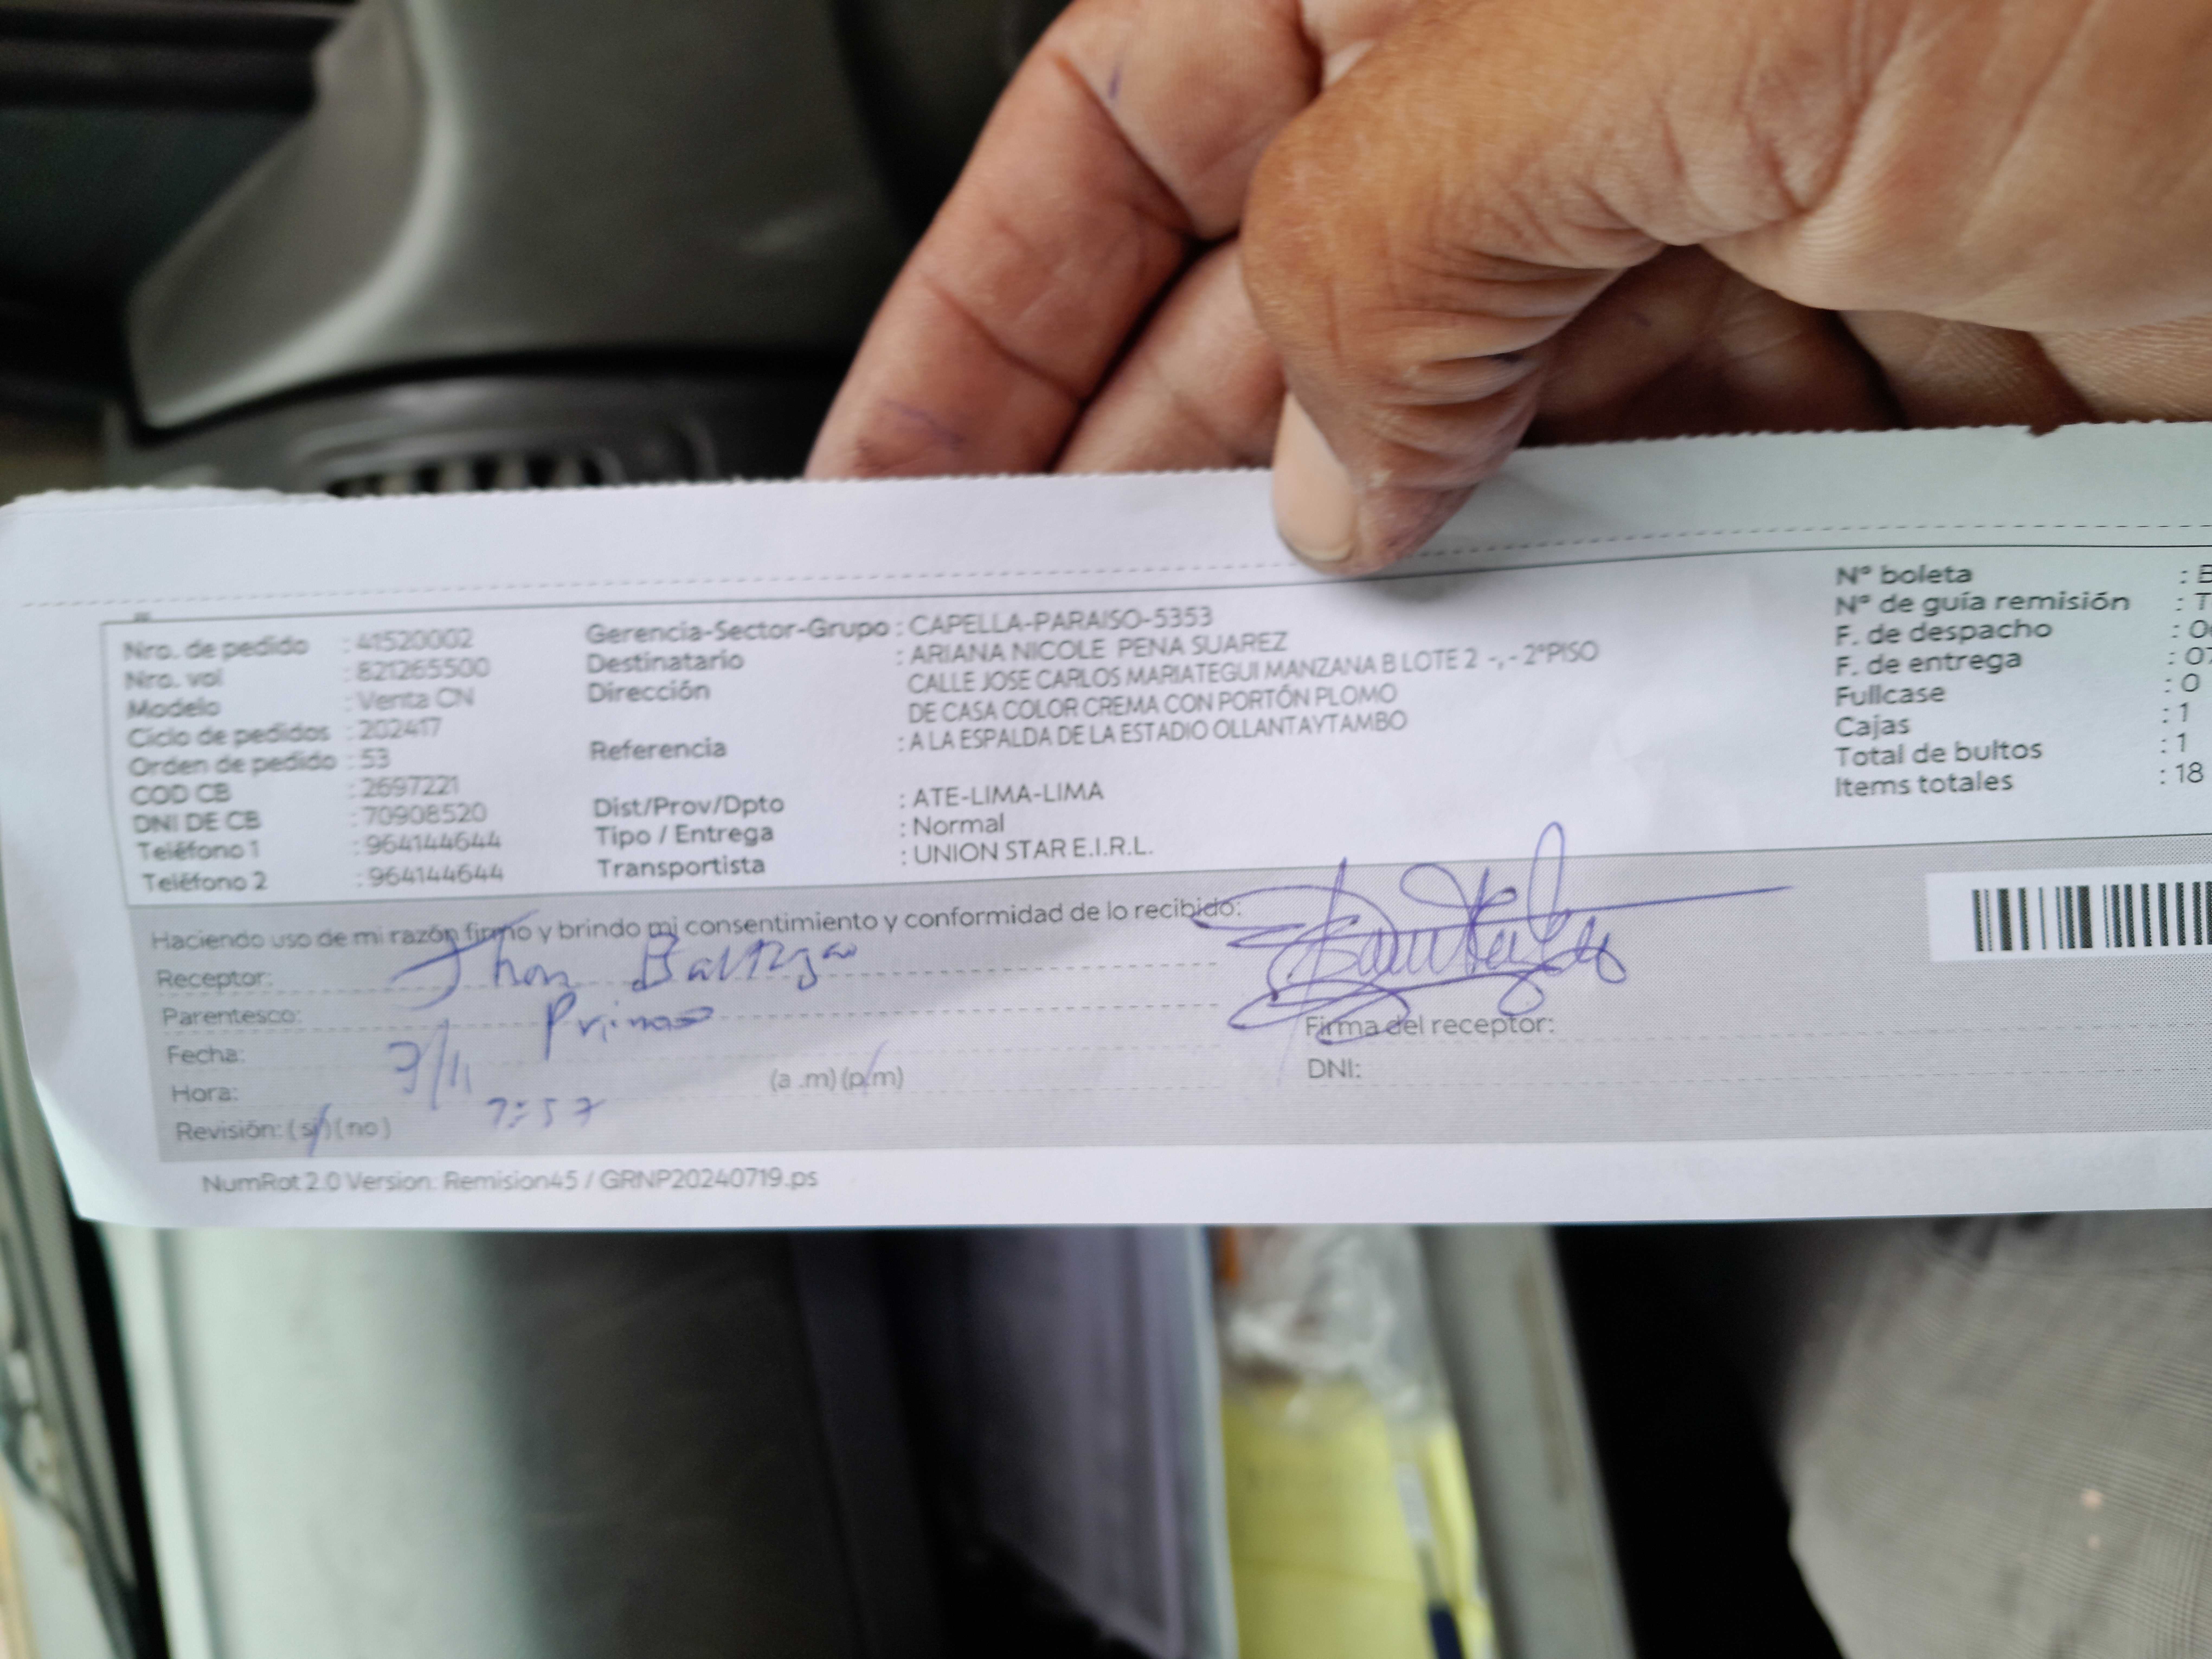 Nro. de pedido : 41520002
Nro. vol : 821265500
Modelo : Venta CN
Ciclo de pedidos : 202417
Orden de pedido : 53
COD CB : 2697221
DNI DE CB : 70908520
Teléfono 1 : 964144644
Teléfono 2 : 964144644
Gerencia-Sector-Grupo : CAPELLA-PARAISO-5353
Destinatario : ARIANA NICOLE PENA SUAREZ
Dirección CALLE JOSE CARLOS MARIATEGUI MANZANA B LOTE 2 -, - 2°PISO
DE CASA COLOR CREMA CON PORTÓN PLOMO
Referencia : A LA ESPALDA DE LA ESTADIO OLLANTAYTAMBO
Dist/Prov/Dpto : ATE-LIMA-LIMA
Tipo / Entrega : Normal
Transportista : UNION STAR E.I.R.L.
N° boleta : B
N° de guía remisión : T
F. de despacho : 0
F. de entrega : 07
Fullcase : 0
Cajas : 1
Total de bultos : 1
Items totales : 18
Haciendo uso de mi razón firmo y brindo mi consentimiento y conformidad de lo recibido:
Receptor: Jhon Baltazar
Parentesco: Primo
Fecha: /11
Hora: 7:57 (a .m) (p.m)
Revisión: ( si ) ( no )
Firma del receptor:
DNI:
NumRot 2.0 Version: Remision45 / GRNP20240719.ps